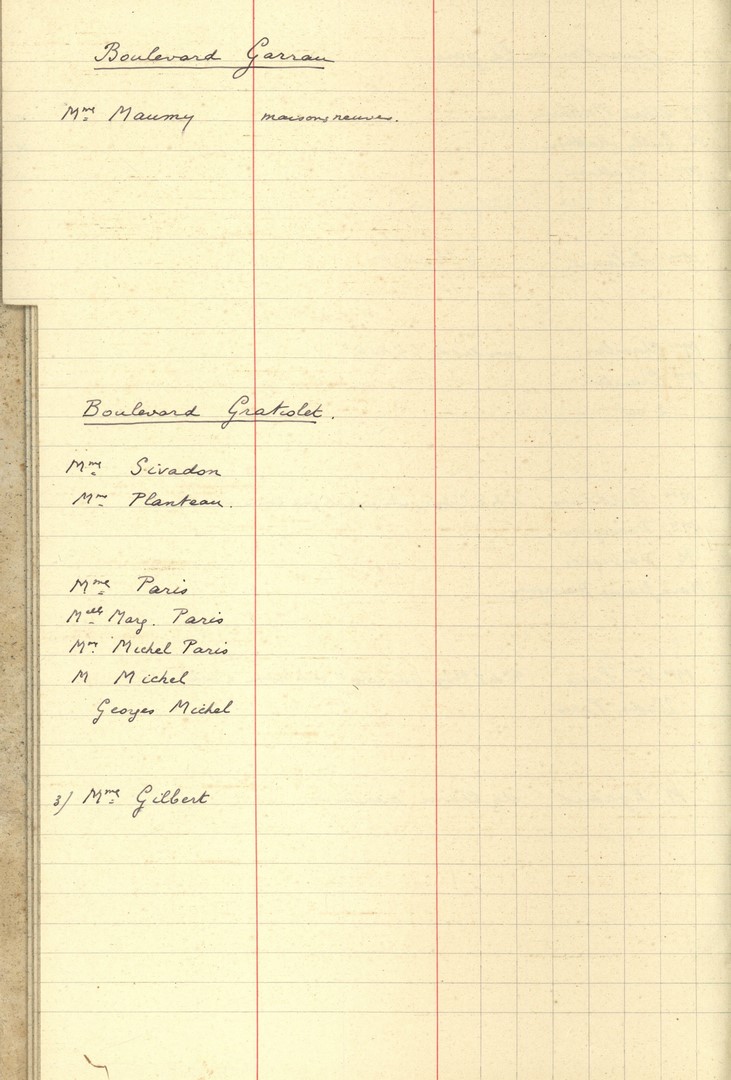 Boulevard Garrau
Mme Maumy maisons neuves.
Boulevard Gratiolet.
Mme Sivadon
Mme Planteau.
Mme Paris
Melle Marg. Paris
Mme Michel Paris
M Michel
Georges Michel
3) Mme Gilbert